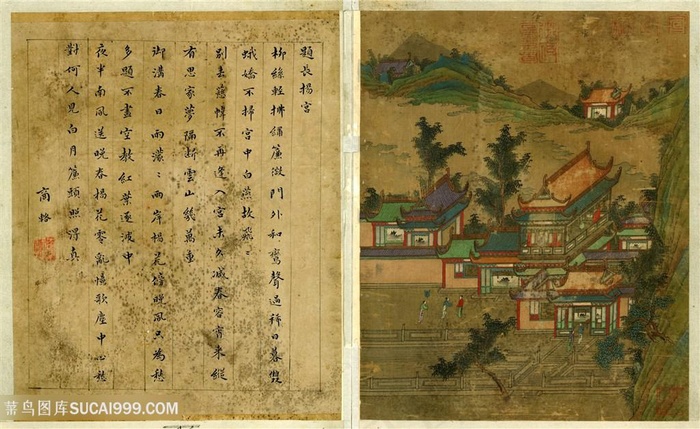 題長楊宮
柳絲輕拂簾微門外和鸞聲過稀日暮雙
蛾嬌不掃宮中白燕故飛〻
別去幃不再逢入宮未久減春容宵來縱
有思家夢隔斷雲山幾萬重
御溝春日雨濛〻兩岸楊花傍晚風只為愁
多題不盡空教紅葉逐波中
夜半南風送晚春楊花零亂憶歌塵中心愁
對何人見白月簾頭照得真
商輅
菜鸟图库SUCAI999.COM